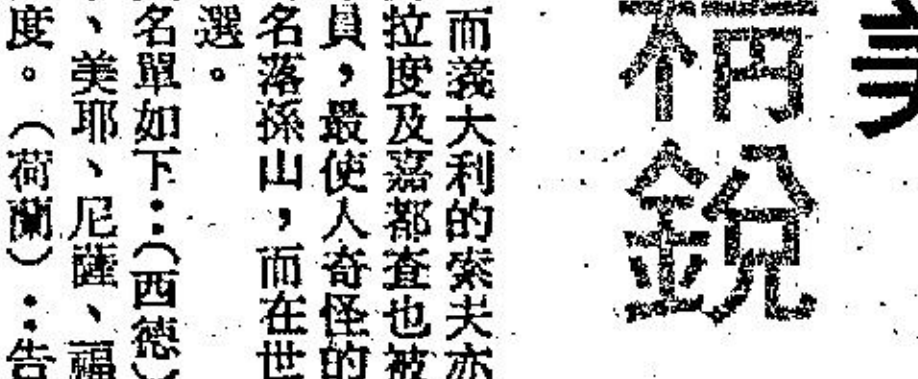 銳
而義大利的索夫亦
拉度及嘉都查也被
員，最使人奇怪的
名落孫山，而在世
選。
名單如下：（西德）
、美耶、尼薩、福
度。（荷蘭）：告